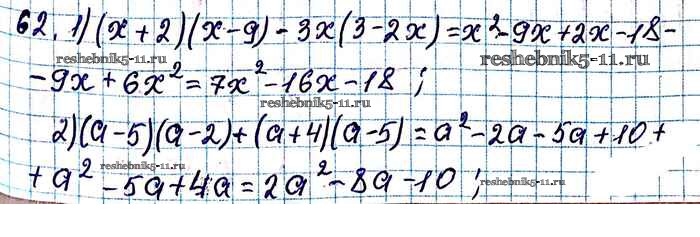 62. 1) (x + 2)(x - 9) - 3x(3 - 2x) = x² - 9x + 2x - 18 -
reshebnik5-11.ru
reshebnik5-11.ru
- 9x + 6x² = 7x² - 16x - 18 ;
reshebnik5-11.ru
2) (a - 5)(a - 2) + (a + 4)(a - 5) = a² - 2a - 5a + 10 +
reshebnik5-11.ru
+ a² - 5a + 4a = 2a² - 8a - 10 ;
reshebnik5-11.ru